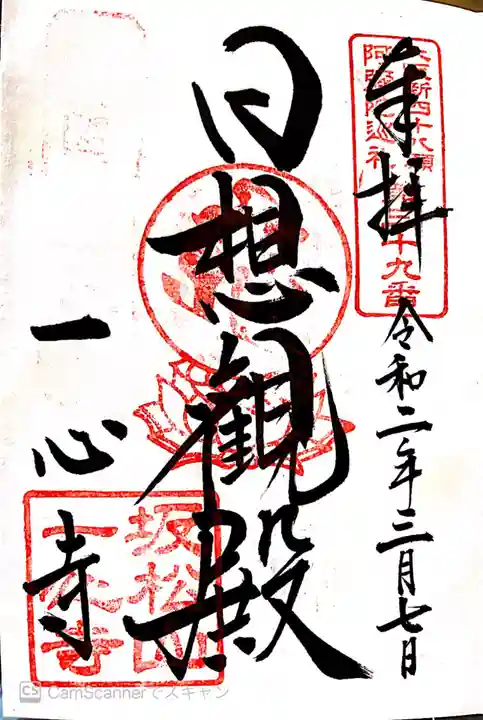 奉拝
令和二年三月七日
阿弥陀巡礼
十九番
日想観殿
一心寺
坂松山
一心寺
CS CamScannerでスキャン